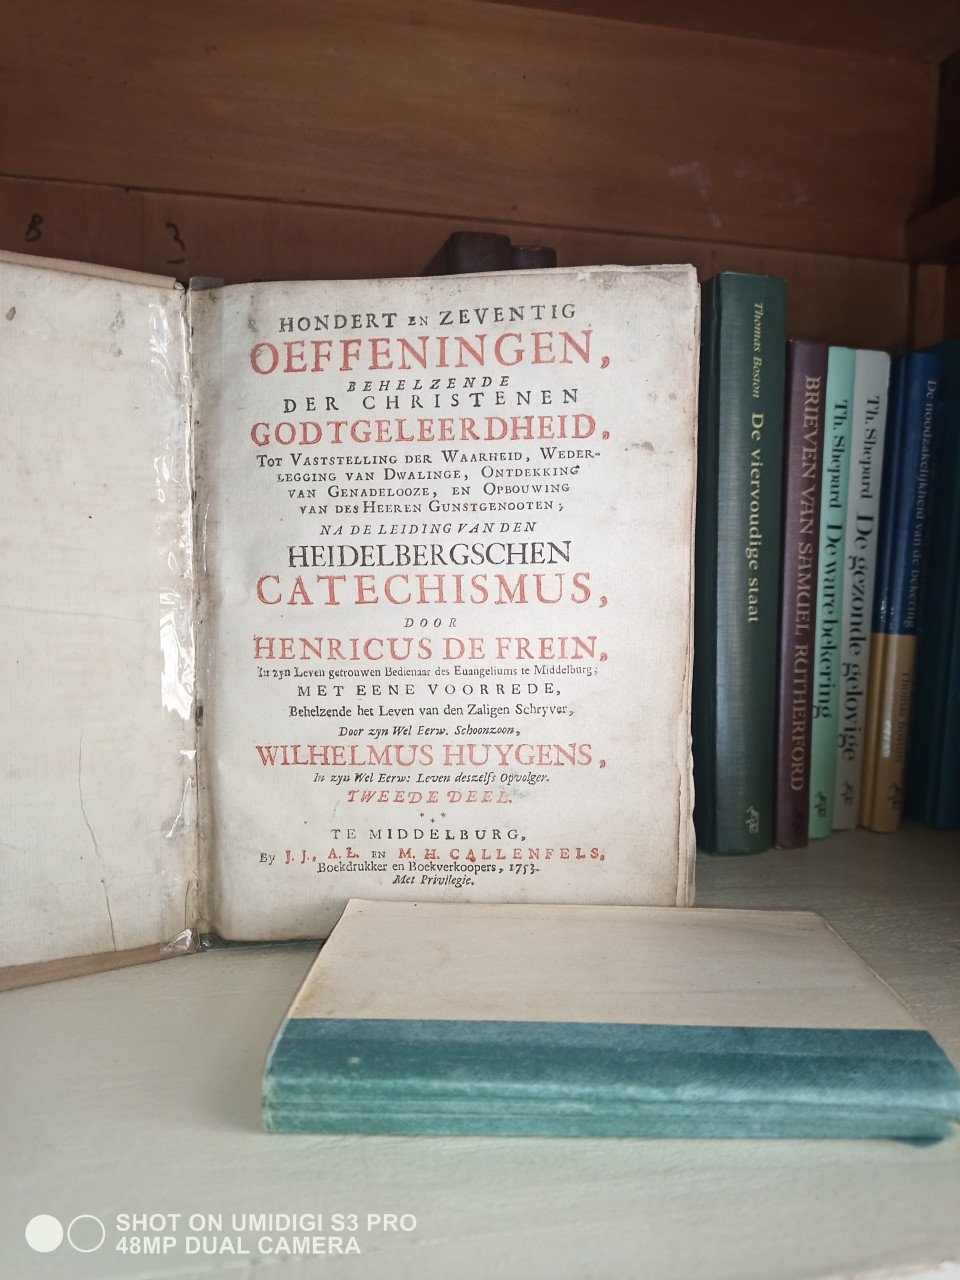 B 3
HONDERT EN ZEVENTIG
OEFFENINGEN,
BEHELZENDE
DER CHRISTENEN
GODTGELEERDHEID,
TOT VASTSTELLING DER WAARHEID, WEDER-
LEGGING VAN DWALINGE, ONTDEKKING
VAN GENADELOOZE, EN OPBOUWING
VAN DES HEEREN GUNSTGENOOTEN;
NA DE LEIDING VAN DEN
HEIDELBERGSCHEN
CATECHISMUS,
DOOR
HENRICUS DE FREIN,
In zyn Leven getrouwen Bedienaar des Euangeliums te Middelburg;
MET EENE VOORREDE,
Behelzende het Leven van den Zaligen Schryver,
Door zyn Wel Eerw. Schoonzoon,
WILHELMUS HUYGENS,
In zyn Wel Eerw: Leven deszelfs Opvolger.
TWEEDE DEEL.
* * *
TE MIDDELBURG,
By J. J., A. L. EN M. H. CALLENFELS,
Boekdrukker en Boekverkoopers, 1753.
Met Privilegie.
Thomas Boston De viervoudige staat
BRIEVEN VAN SAMUEL RUTHERFORD
Th. Shepard De ware bekering
Th. Shepard De gezonde gelovige
De noodzakelijkheid van de bekering
Thomas
SHOT ON UMIDIGI S3 PRO
48MP DUAL CAMERA